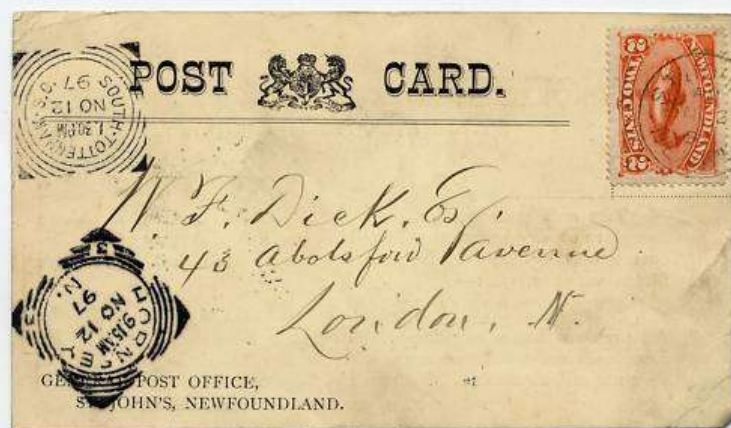 POST CARD.
SOUTH-TOTTENHAM
1.30PM
NO 12
97
2 TWO CENTS 2
NEWFOUNDLAND
W. F. Dick, Es
43 Abolsford avenue
London. N.
HORNSEY
9.15AM
NO 12
97
N.
GENERAL POST OFFICE,
ST. JOHN'S, NEWFOUNDLAND.